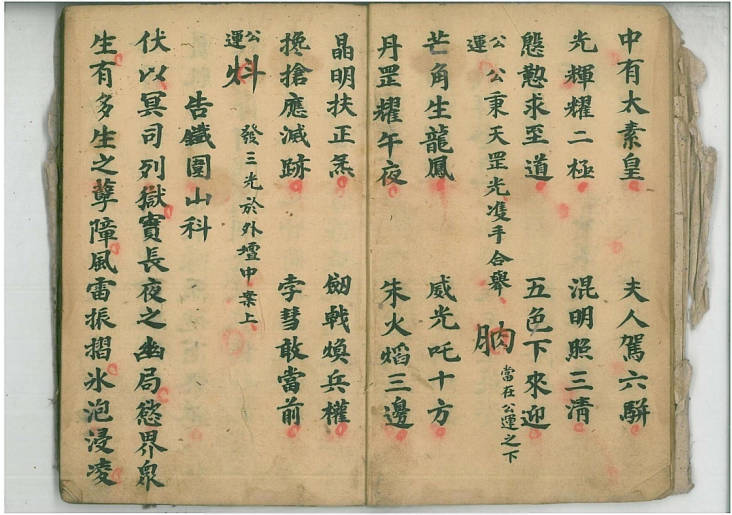 中有大素皇 夫人駕六騈
光輝耀二極 混明照三清
慇懃求至道 五色下來迎
運公 公秉天罡光凖手合舉 當在公運之下
芒角生龍鳳 威光吒十方
丹罡耀午夜 朱火熖三邊
晶明扶正炁 劔戟煥兵權
攙搶應滅跡 孛彗敢當前
運公 發三光於外壇中案上
告鐵圍山科
伏以冥司列獄寳長夜之幽局慾界衆
生有多生之孽障風雷振摺氷泡浸凌